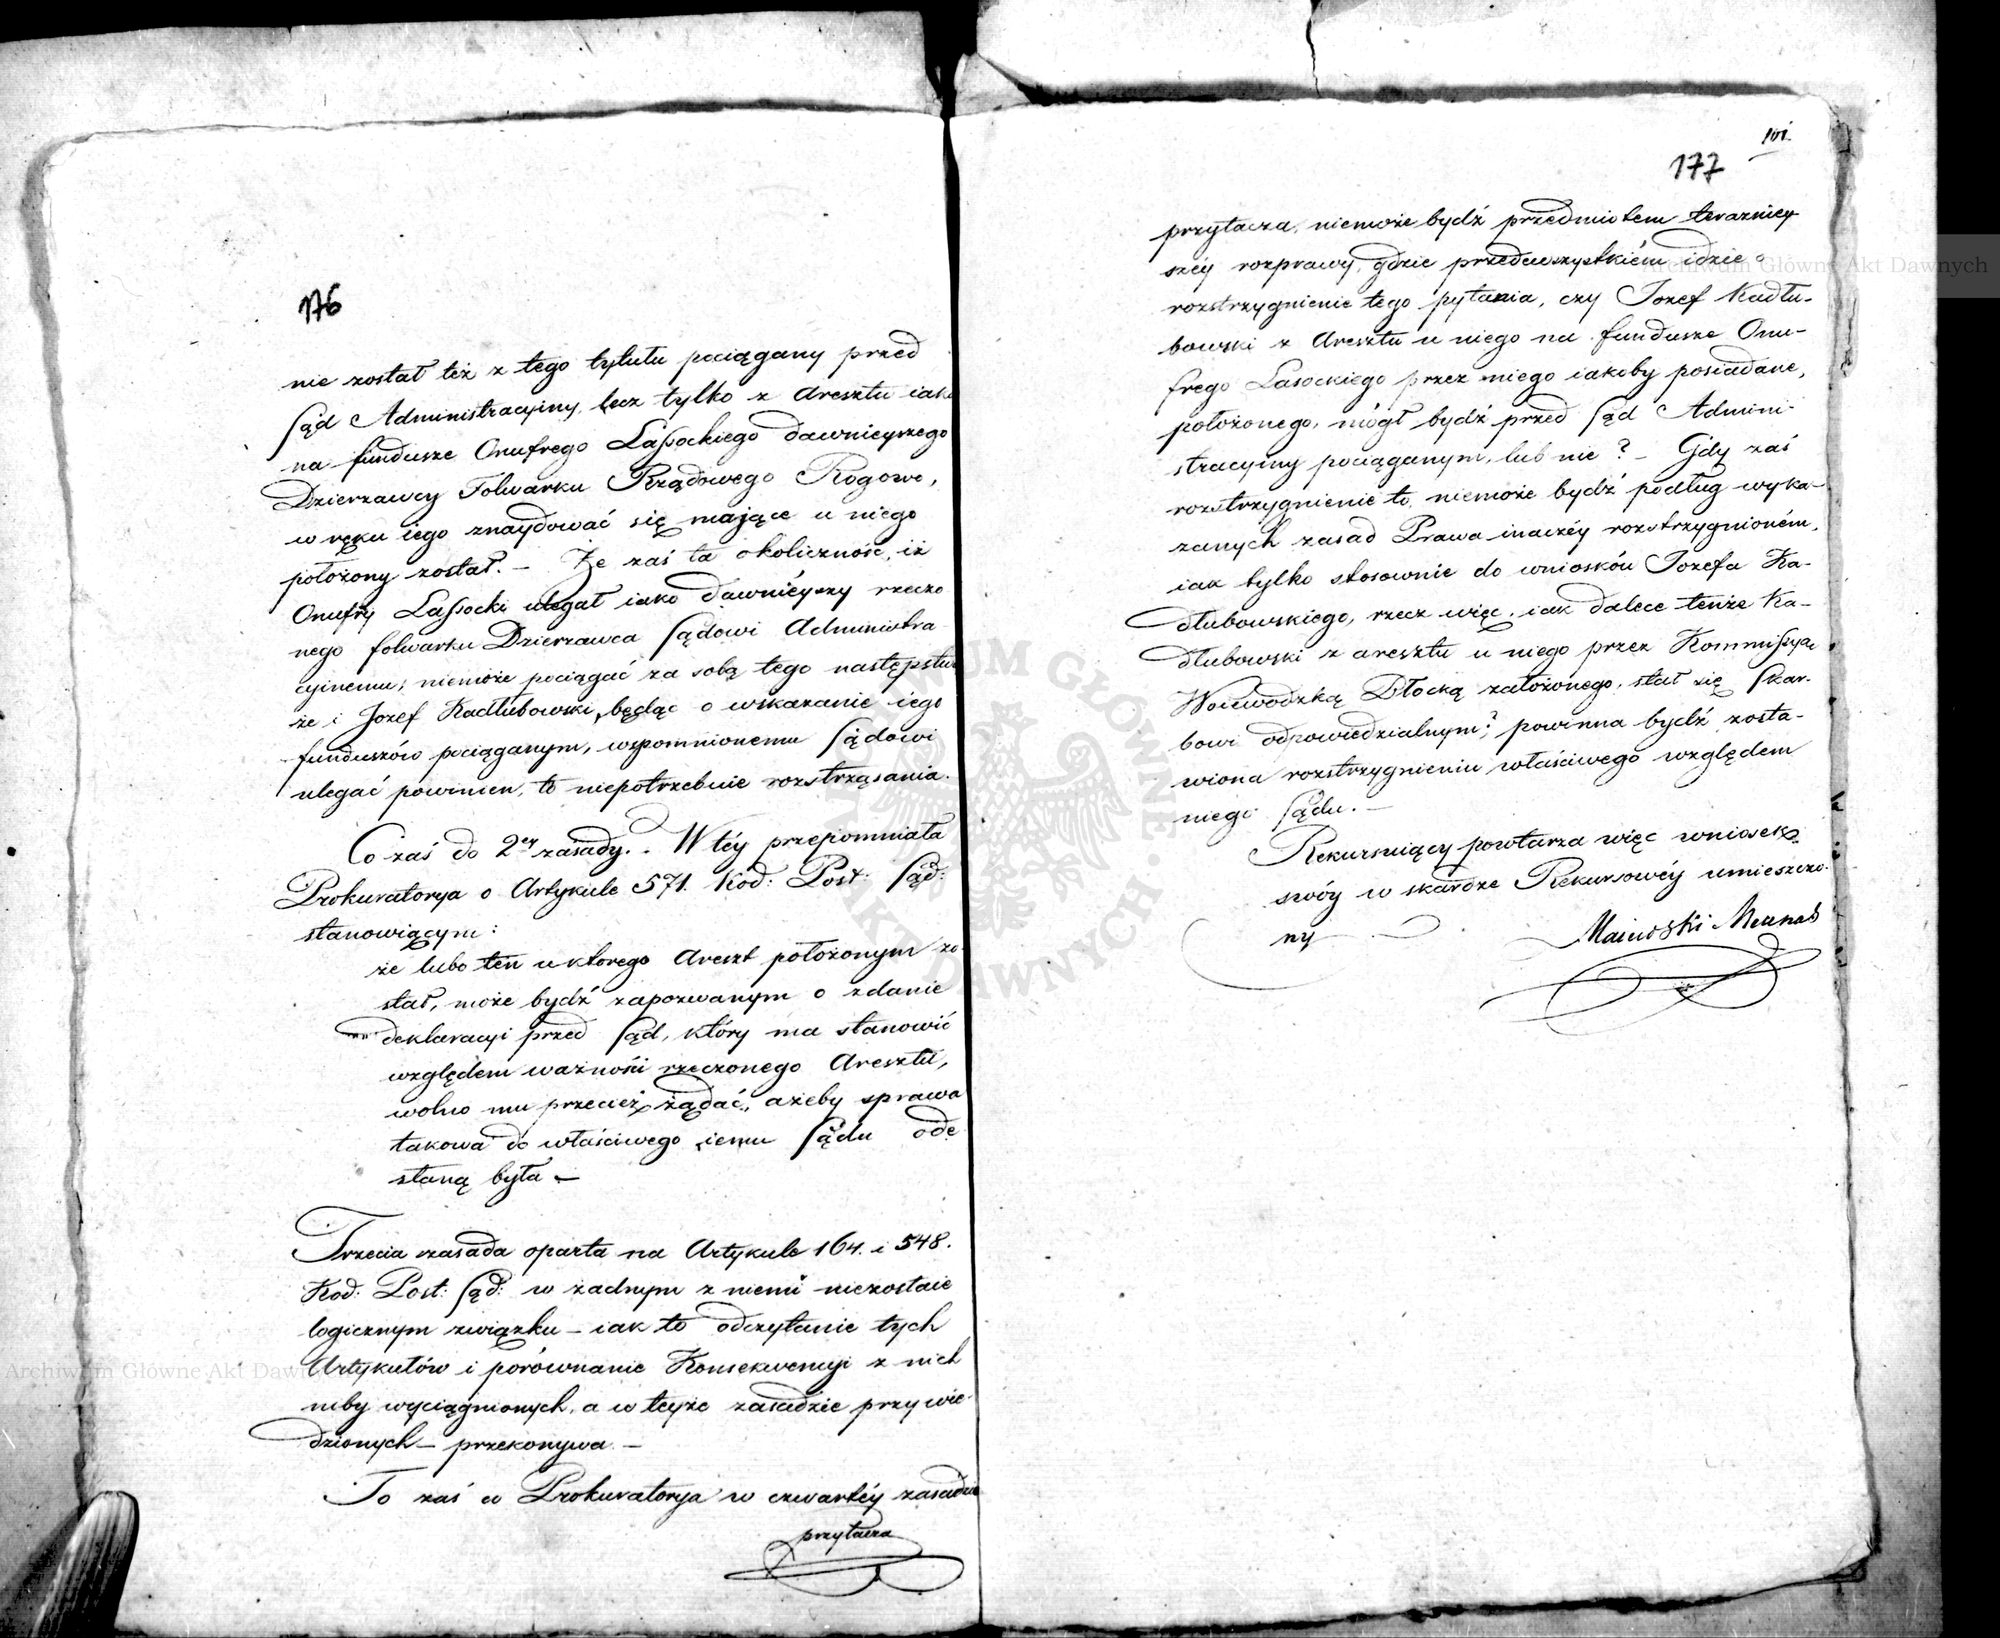 176
nie został też z tego tytułu pociągany przed
Sąd Administracyiny, lecz tylko z Aresztu iak
na fundusze Onufrego Lassockiego dawnieyszego
Dzierzawcy Folwarku Rządowego Rogowo,
w ręku iego znaydować się mające u niego
położony został. — Że zaś ta okoliczność, iż
Onufry Lassocki ulegał iako dawniéyszy rzeczo
nego folwarku Dzierzawca Sądowi Administra-
cyinemu, niemoże pociągać za sobą tego następstw
że i Jozef Kadłubowski, będąc o wskazanie iego
funduszów pociąganym, wspomnionemu Sądowi
ulegać powinien, to niepotrzebuie rozstrząsania.
Co zaś do 2ey zasady. Wtéy przepomniała
Prokuratorya o Artykule 571. Kod: Post: Sąd:
stanowiącym:
że lubo ten u ktorego Areszt położonym zo
stał, może bydź zapozwanym o zdanie
deklaracyi przed Sąd, który ma stanowić
względem ważności rzeczonego Aresztu,
wolno mu przecież żądać, ażeby sprawa
takowa do właściwego iemu Sądu ode
słaną była —
Trzecia zasada oparta na Artykule 164. i 548.
Kod: Post: Sąd: w żadnym z niemi niezostaie
logicznym związku — iak to odczytanie tych
Artykułów i porównanie Konsekwencyi z nich
niby wyciągnionych, a w teyże zasadzie przywie-
dzionych — przekonywa. —
To zaś co Prokuratorya w czwartéy zasadzie
przytacza
101.
177
przytacza, niemoże bydź przedmiotem terazniey-
széy rozprawy, gdzie przedewszystkiém idzie o
rozstrzygnienie tego pytania, czy Jozef Kadłu-
bowski z Aresztu u niego na fundusze Onu-
frego Lasockiego przez niego iakoby posiadane,
położonego, mógł bydź przed Sąd Admini-
stracyiny pociąganym, lub nie? — Gdy zaś
rozstrzygnienie to niemoże bydź podług wyka-
zanych zasad Prawa inaczéy rozstrzygnioném,
iak tylko stosownie do wniosków Jozefa Ka-
dłubowskiego, rzecz więc, iak dalece tenże Ka-
dłubowski z aresztu u niego przez Kommissyą
Woiewodzką Płocką założonego, stał się Skar-
bowi odpowiedzialnym? powinna bydź zosta-
wiona rozstrzygnieniu właściwego względem
niego Sądu. —
Rekursuiący powtarza więc wniosek
swóy w skardze Rekursowéy umieszczo-
ny
Maiewski Mecenas
Archiwum Główne Akt Dawnych
Archiwum Główne Akt Dawnych
ARCHIWUM GŁÓWNE AKT DAWNYCH